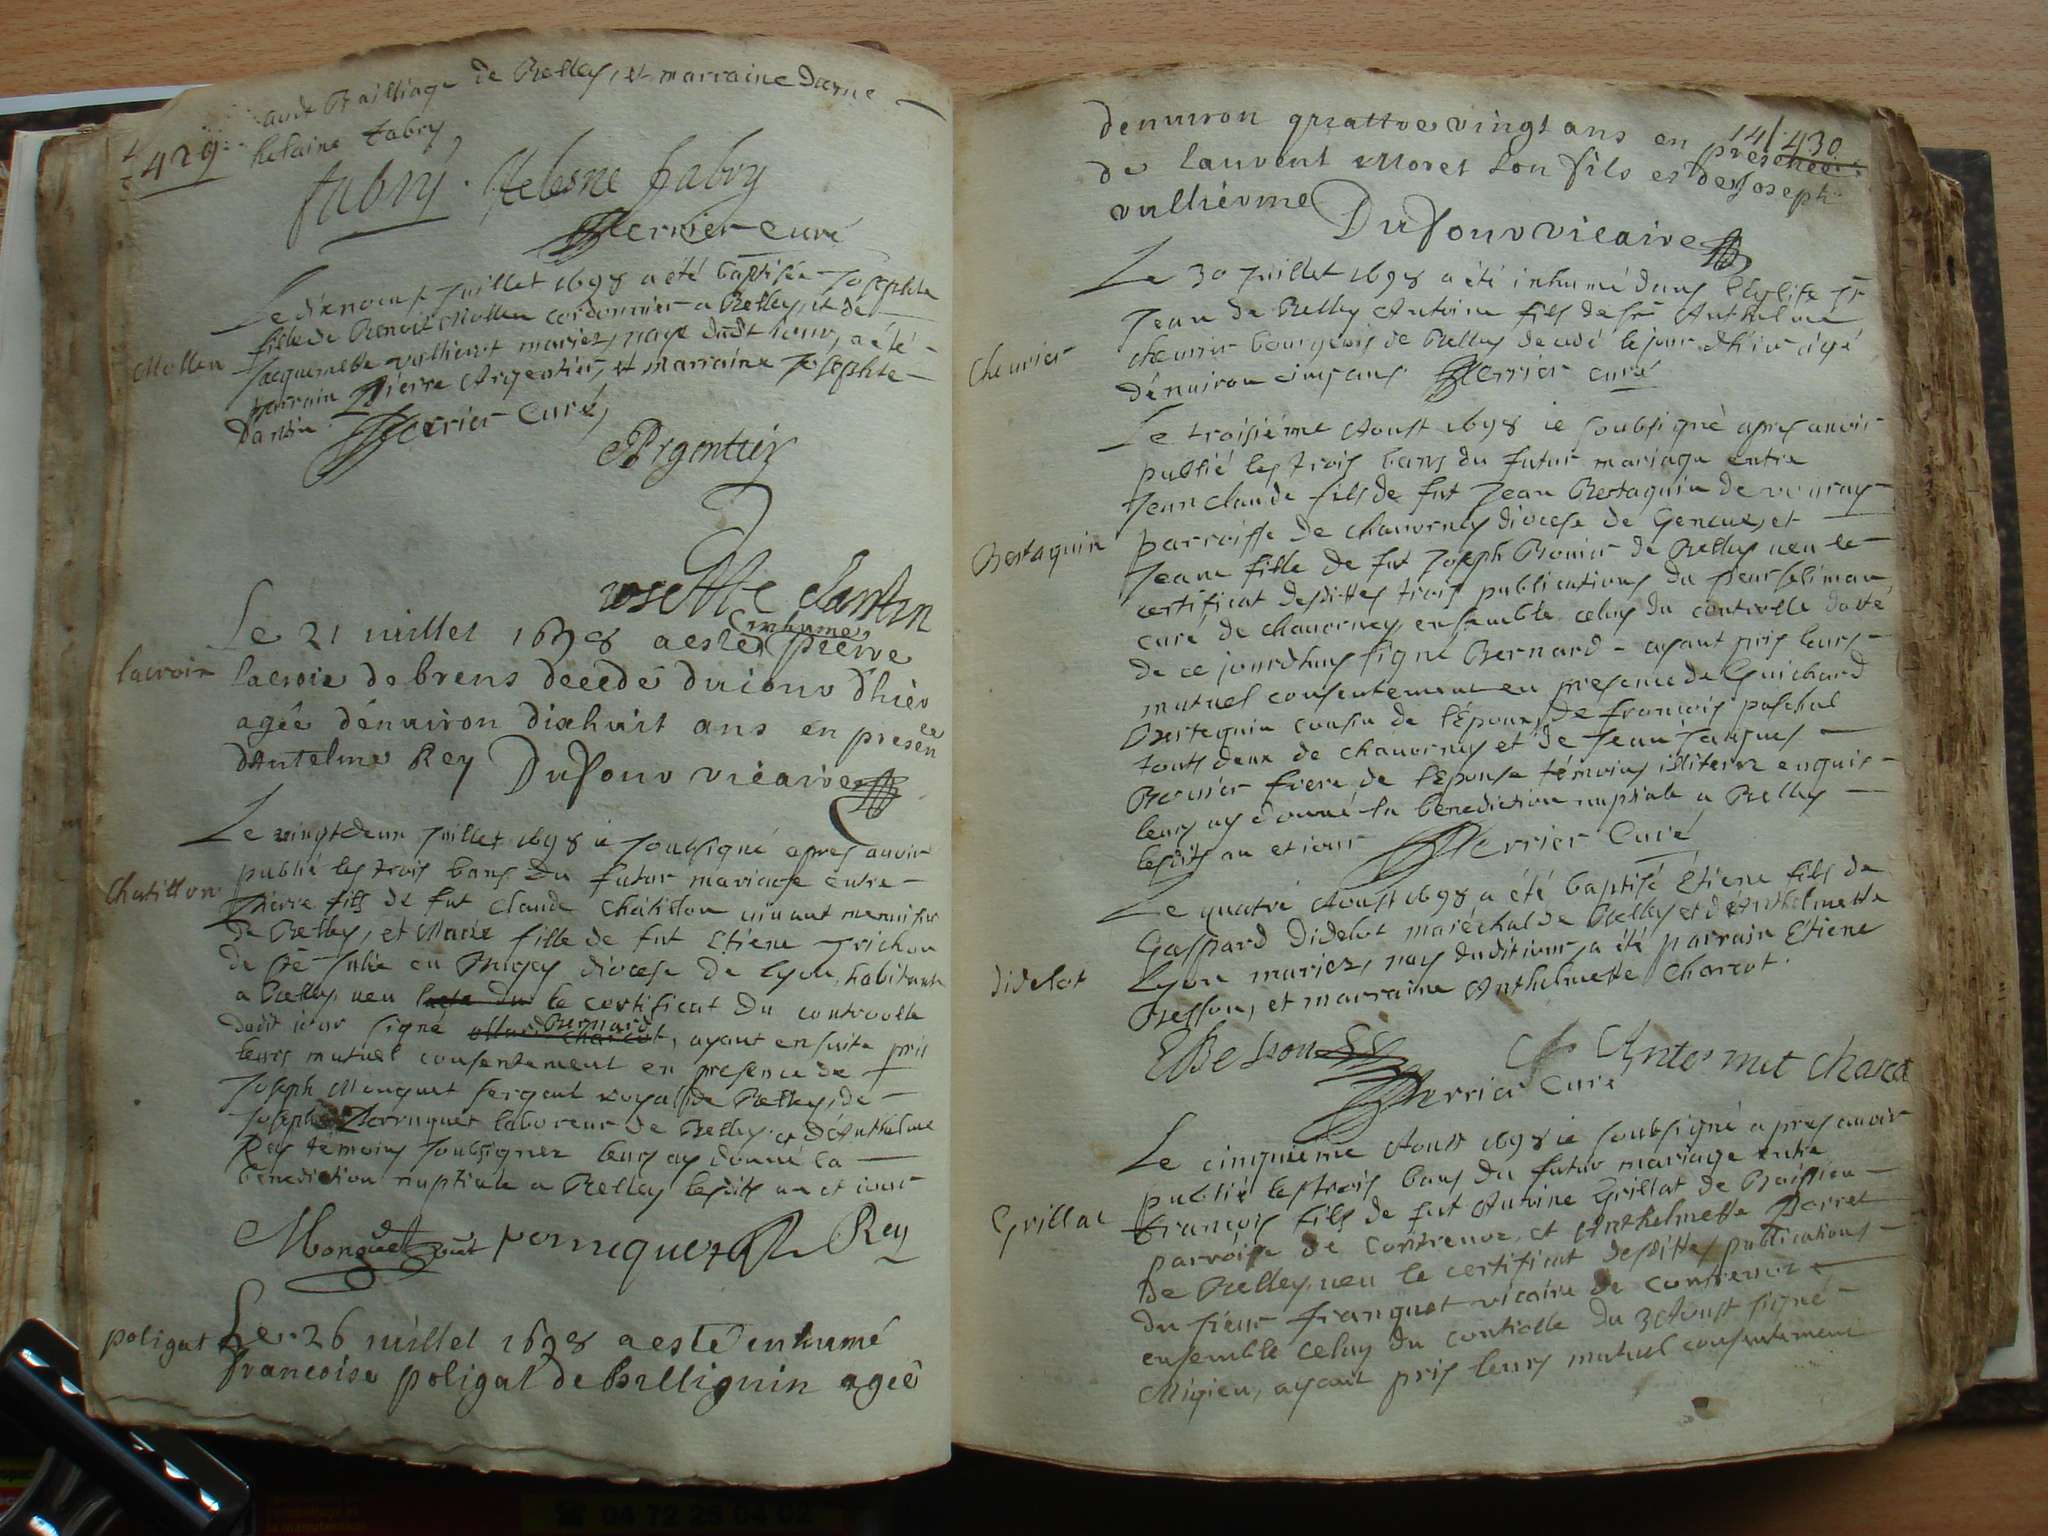 429
au Bailliage de Belley, et marraine dame
helaine Fabry
fabry. Helesne fabry
Perrier curé
Mollen
Le dixneuf Juillet 1698 a été baptisée Josephte
fille de Benoit Mollen cordonnier a Belley, et de
Jacquemette mariez, naye dudit jour, a été
parrain Pierre Argentier, et marraine Josephte
Dantin Perrier Curé,
Argentier
Josette dantin
lacroix
Le 21 iuillet 1698 a esté inhumé pierre
lacroix de brens decedé du iour d'hier
agée dénuiron dixhuit ans en presence
dAntelme Rey Dufour vicaire
Chatillon
Le vingtdeux Juillet 1698 ie soubsigné apres auoir
publié les trois bans du futur mariage entre
Pierre fils de fut Claude Châtillon viuant
de Belley, et Marie fille de fut Etiene Trichon
de St en Bugey diocese de Lyon, habitante
a Belley, ueu le certificat du controolle
dudit iour signé Bernard, ayant ensuite pris
leurs mutuel consentement en presence de
Joseph Monguet sergent royal de Belley, de
Joseph Perruquet laboreur de Belley, et d'Anthelme
Rey témoins soubsignez leurs ay donné la
bénédiction nuptiale a Belley lesdits an et iour
Monguet perruquet Rey
poligat
Le 26 iuillet 1698 a esté inhumé
francoise poligat de billignin agée
141. 430
dénuiron quattrevingt ans en presence
de laurent Moret son fils et de Joseph
vullierme Dufour vicaire
Cheurier
Le 30 Juillet 1698 a été inhumé dans l'Eglise St
Jean de Belley Antoine fils de sr Anthelme
cheurier bourgeois de Belley decedé le jour d'hier âgé
dénuiron cinq ans Perrier curé
Bertaquin
Le troisiéme Aoust 1698 ie soubsigné apres auoir
publié les trois bans du futur mariage entre
Jean Claude fils de fut Jean Bertaquin de
parroisse de Chauornay diocese de Geneue, et
Jeane fille de fut Joseph Bouuier de Belley ueu le
certificat desdittes trois publications du sieur
curé de Chauornay, ensemble celuy du controlle datté
de ce jourdhuy signé Bernard - ayant pris leurs
mutuel consentement en presence de Guichard
Bertaquin cousin de l'Epoux, de francois paschal
touts deux de chauornay et de Jean Jacques
Bouuier frere de l'Epouse témoins illiterez enquis
leurs ay donné la bénédiction nuptiale a Belley
lesdits an et iour Perrier Curé
didelot
Le quatre Aoust 1698 a été baptisé Etiene fils de
Gaspard Didelot maréchal de Belley et d'Anthelmette
Lyon mariez, nay dudit iour, a été parrain Etiene
Besson, et marraine Anthelmette Charcot.
EBesson Antoemet charcot
Perrier Curé
Grillat
Le cinquiéme Aoust 1698 ie soubsigné apres auoir
publié les trois bans du futur mariage entre
francois fils de fut Antoine Grillat de
parroisse de Contreuoz, et Anthelmette Perret
de Belley, ueu le certificat desdittes publications
du sieur franquet vicaire de Contreuoz
ensemble celuy du controlle du 3 Aoust signé
Migieu, ayant pris leurs mutuel consentement
04 72 25 04 02